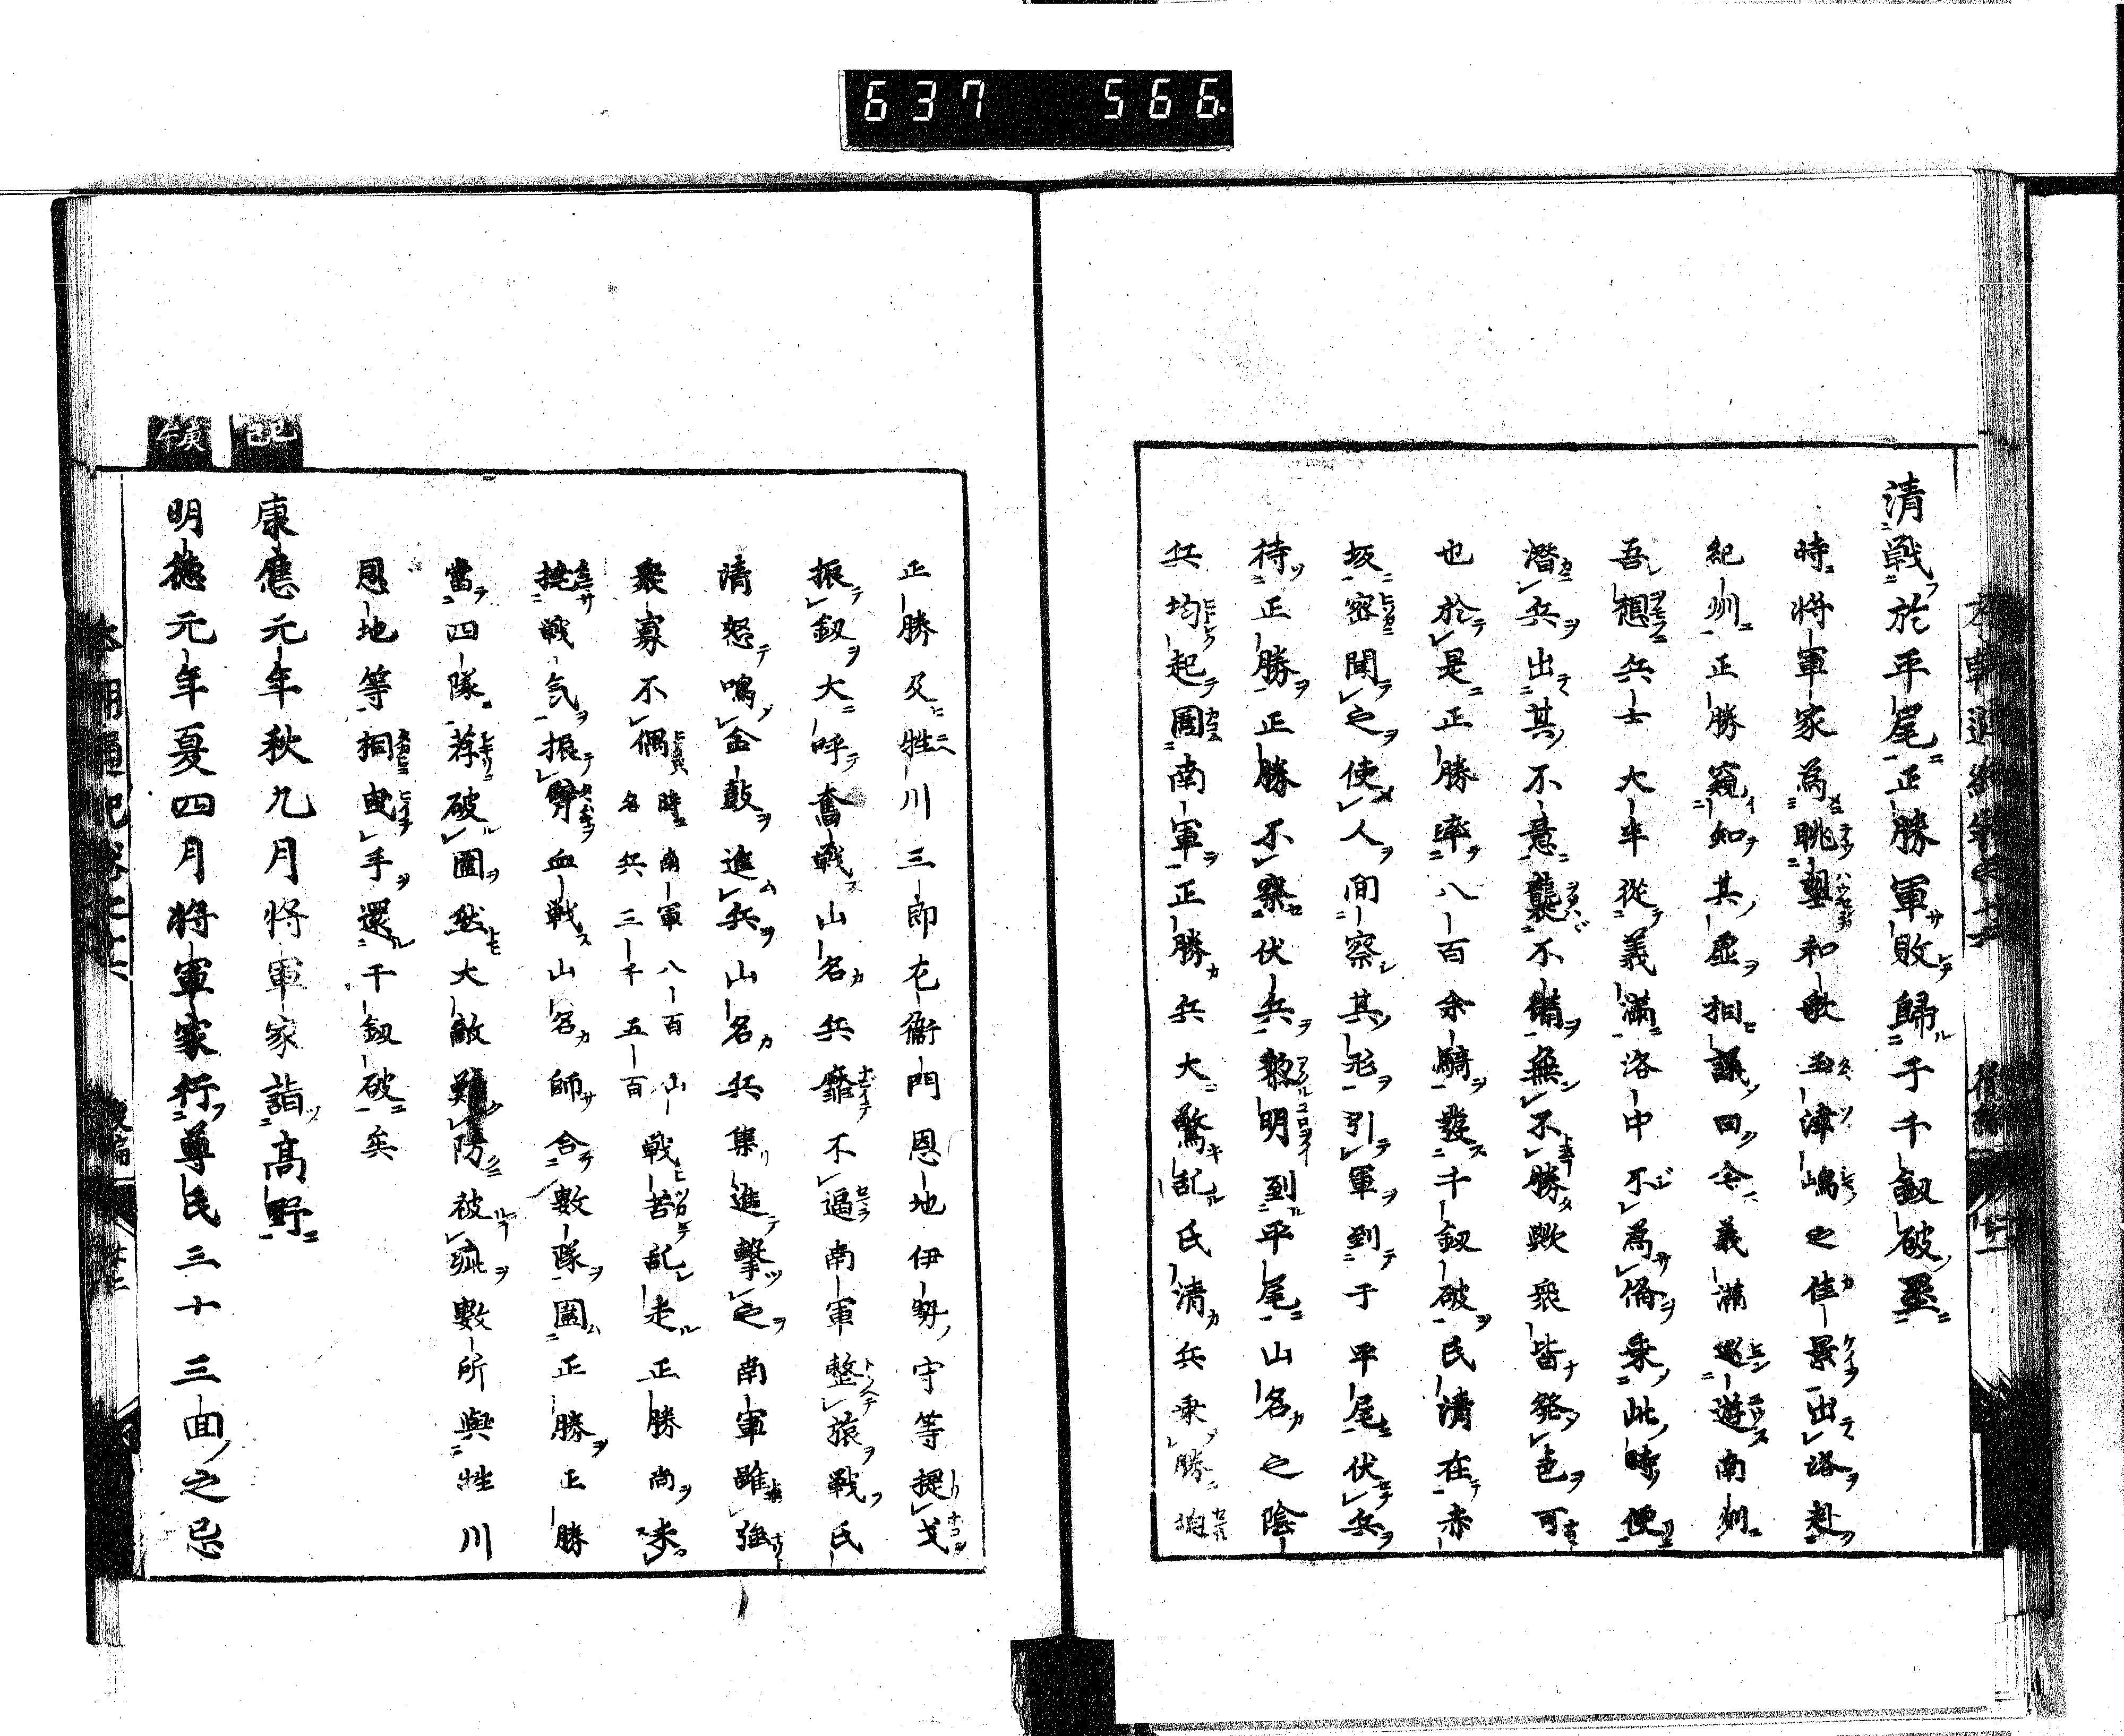 637 566.
清戰於平尾正勝軍敗歸于千釼破壘
時將軍家為眺望和歌玉津嶋之佳景出洛赴
紀州正勝窺知其虛相議曰今義滿遊南州
吾想兵士大半從義滿洛中不為備乘此時便
潛兵出其不意襲不備無不勝歟衆皆發色可
也於是正勝率八百余騎發千釼破氏清在赤
坂密聞之使人間察其形引軍到于平尾伏兵
待正勝正勝不察伏兵黎明到平尾山名之陰
兵均起圍南軍正勝兵大驚乱氏清兵乘勝
正勝及牲川三郎左衞門恩地伊勢守等提戈
振釼大呼奮戰山名兵靡不逼南軍整旅戰氏
清怒鳴金鼓進兵山名兵集進擊之南軍雖強
衆寡不偶時南軍八百山名兵三千五百戰苦乱走正勝尚未
挫戰気振臂血戰山名師合數隊圍正勝正勝
當四隊荐破圍然大敵難防被疵數所與牲川
恩地等相曳手還千釼破矣
己巳
康應元年秋九月將軍家詣高野
庚午
明德元年夏四月將軍家行尊氏三十三回之忌